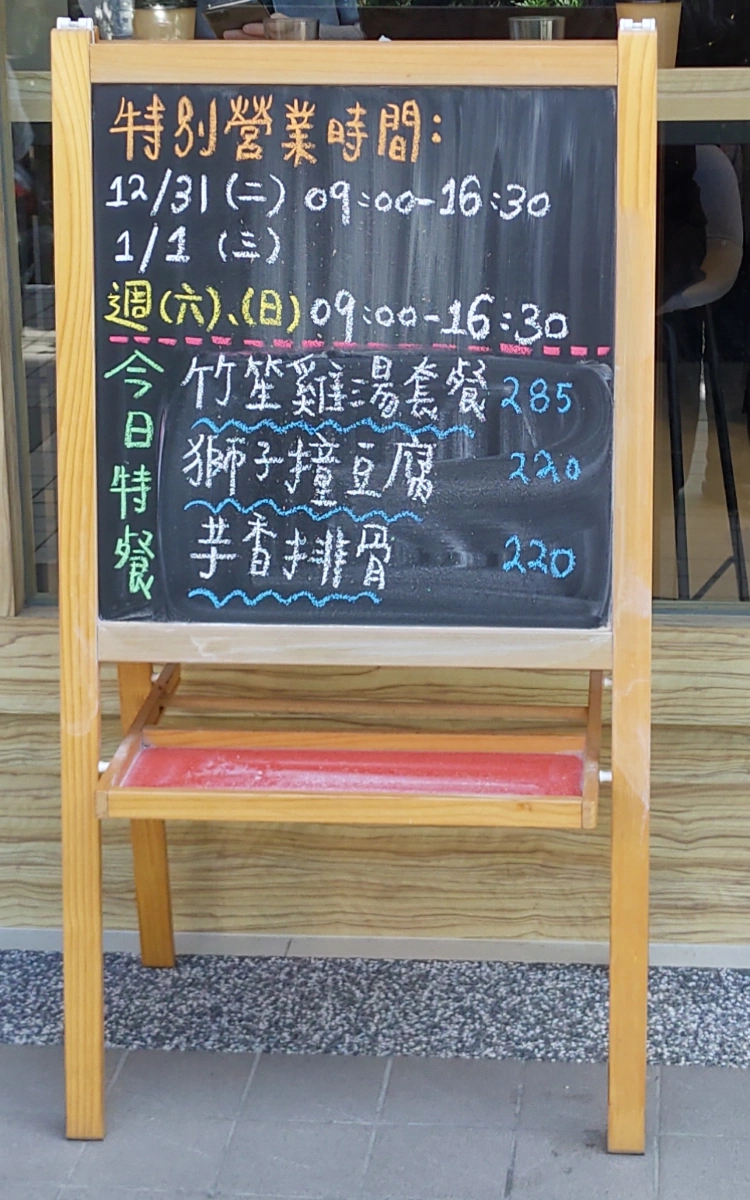 特別營業時間:
12/31(二) 09:00-16:30
1/1 (三)
週(六)、(日) 09:00-16:30
今日特餐
竹笙雞湯套餐 285
獅子撞豆腐 220
芋香排骨 220